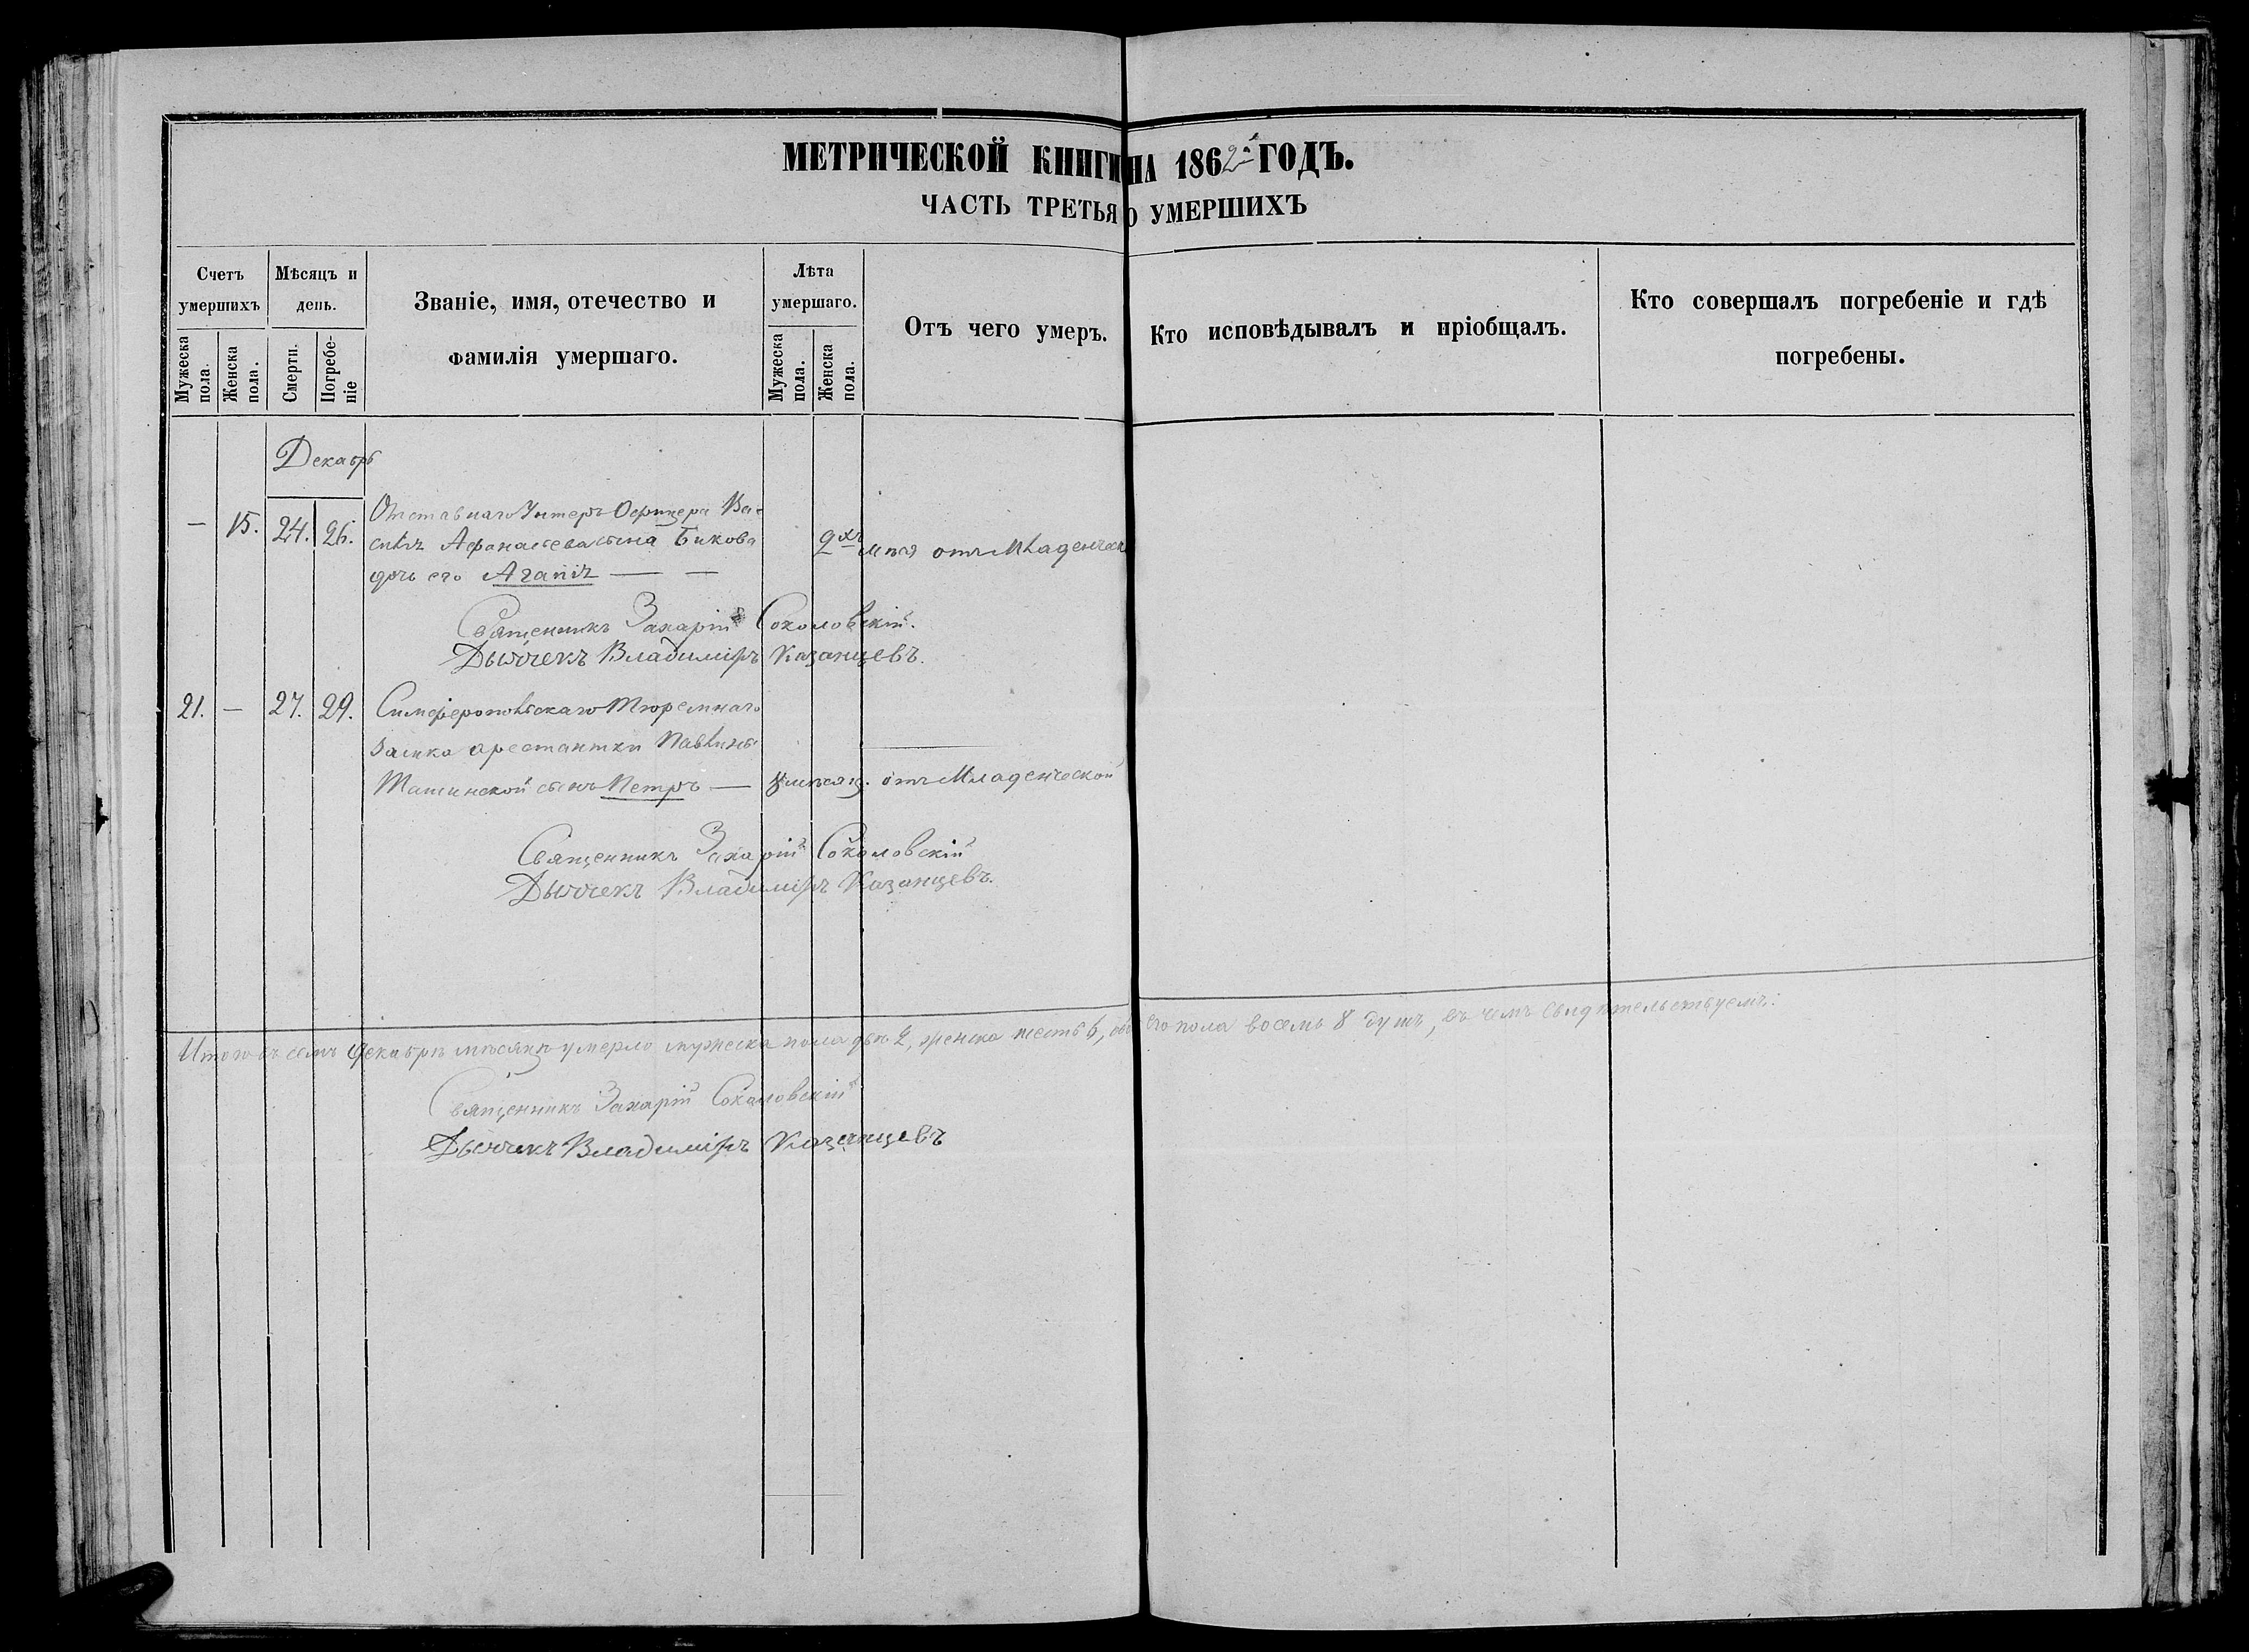 МЕТРИЧЕСКОЙ КНИГИ НА 1862й ГОДЪ.
ЧАСТЬ ТРЕТЬЯ О УМЕРШИХЪ
Счетъ умершихъ
Мѣсяцъ и день.
Званіе, имя, отечество и фамилія умершаго.
Лѣта умершаго.
Отъ чего умеръ.
Кто исповѣдывалъ и пріобщалъ.
Кто совершалъ погребеніе и гдѣ погребены.
Мужеска пола.
Женска пола.
Смерти.
Погребеніе
Мужеска пола.
Женска пола.
Декабрь
— 15. 24. 26. Отставнаго Унтеръ Офицера Ва-
силія Афанасьева сына Бикова
дочь его Агапія — — 9хъ мѣся отъ Младенческ
Священникъ Захарій Соколовскій.
Дьячекъ Владиміръ Казанцевъ.
21. — 27. 29. Симферопольскаго Тюремнаго
Замка арестантки Павлины
Машинской сынъ Петръ — мѣсяц. отъ Младенческой
Священникъ Захарій Соколовскій
Дьячекъ Владиміръ Казанцевъ.
Итого въ семъ Декабрѣ мѣсяцѣ умерло мужеска пола два 2, женска шесть 6, обоего пола восемь 8 душъ, въ чемъ свидѣтельствуемъ:
Священникъ Захарій Соколовскій
Дьячекъ Владиміръ Казанцевъ